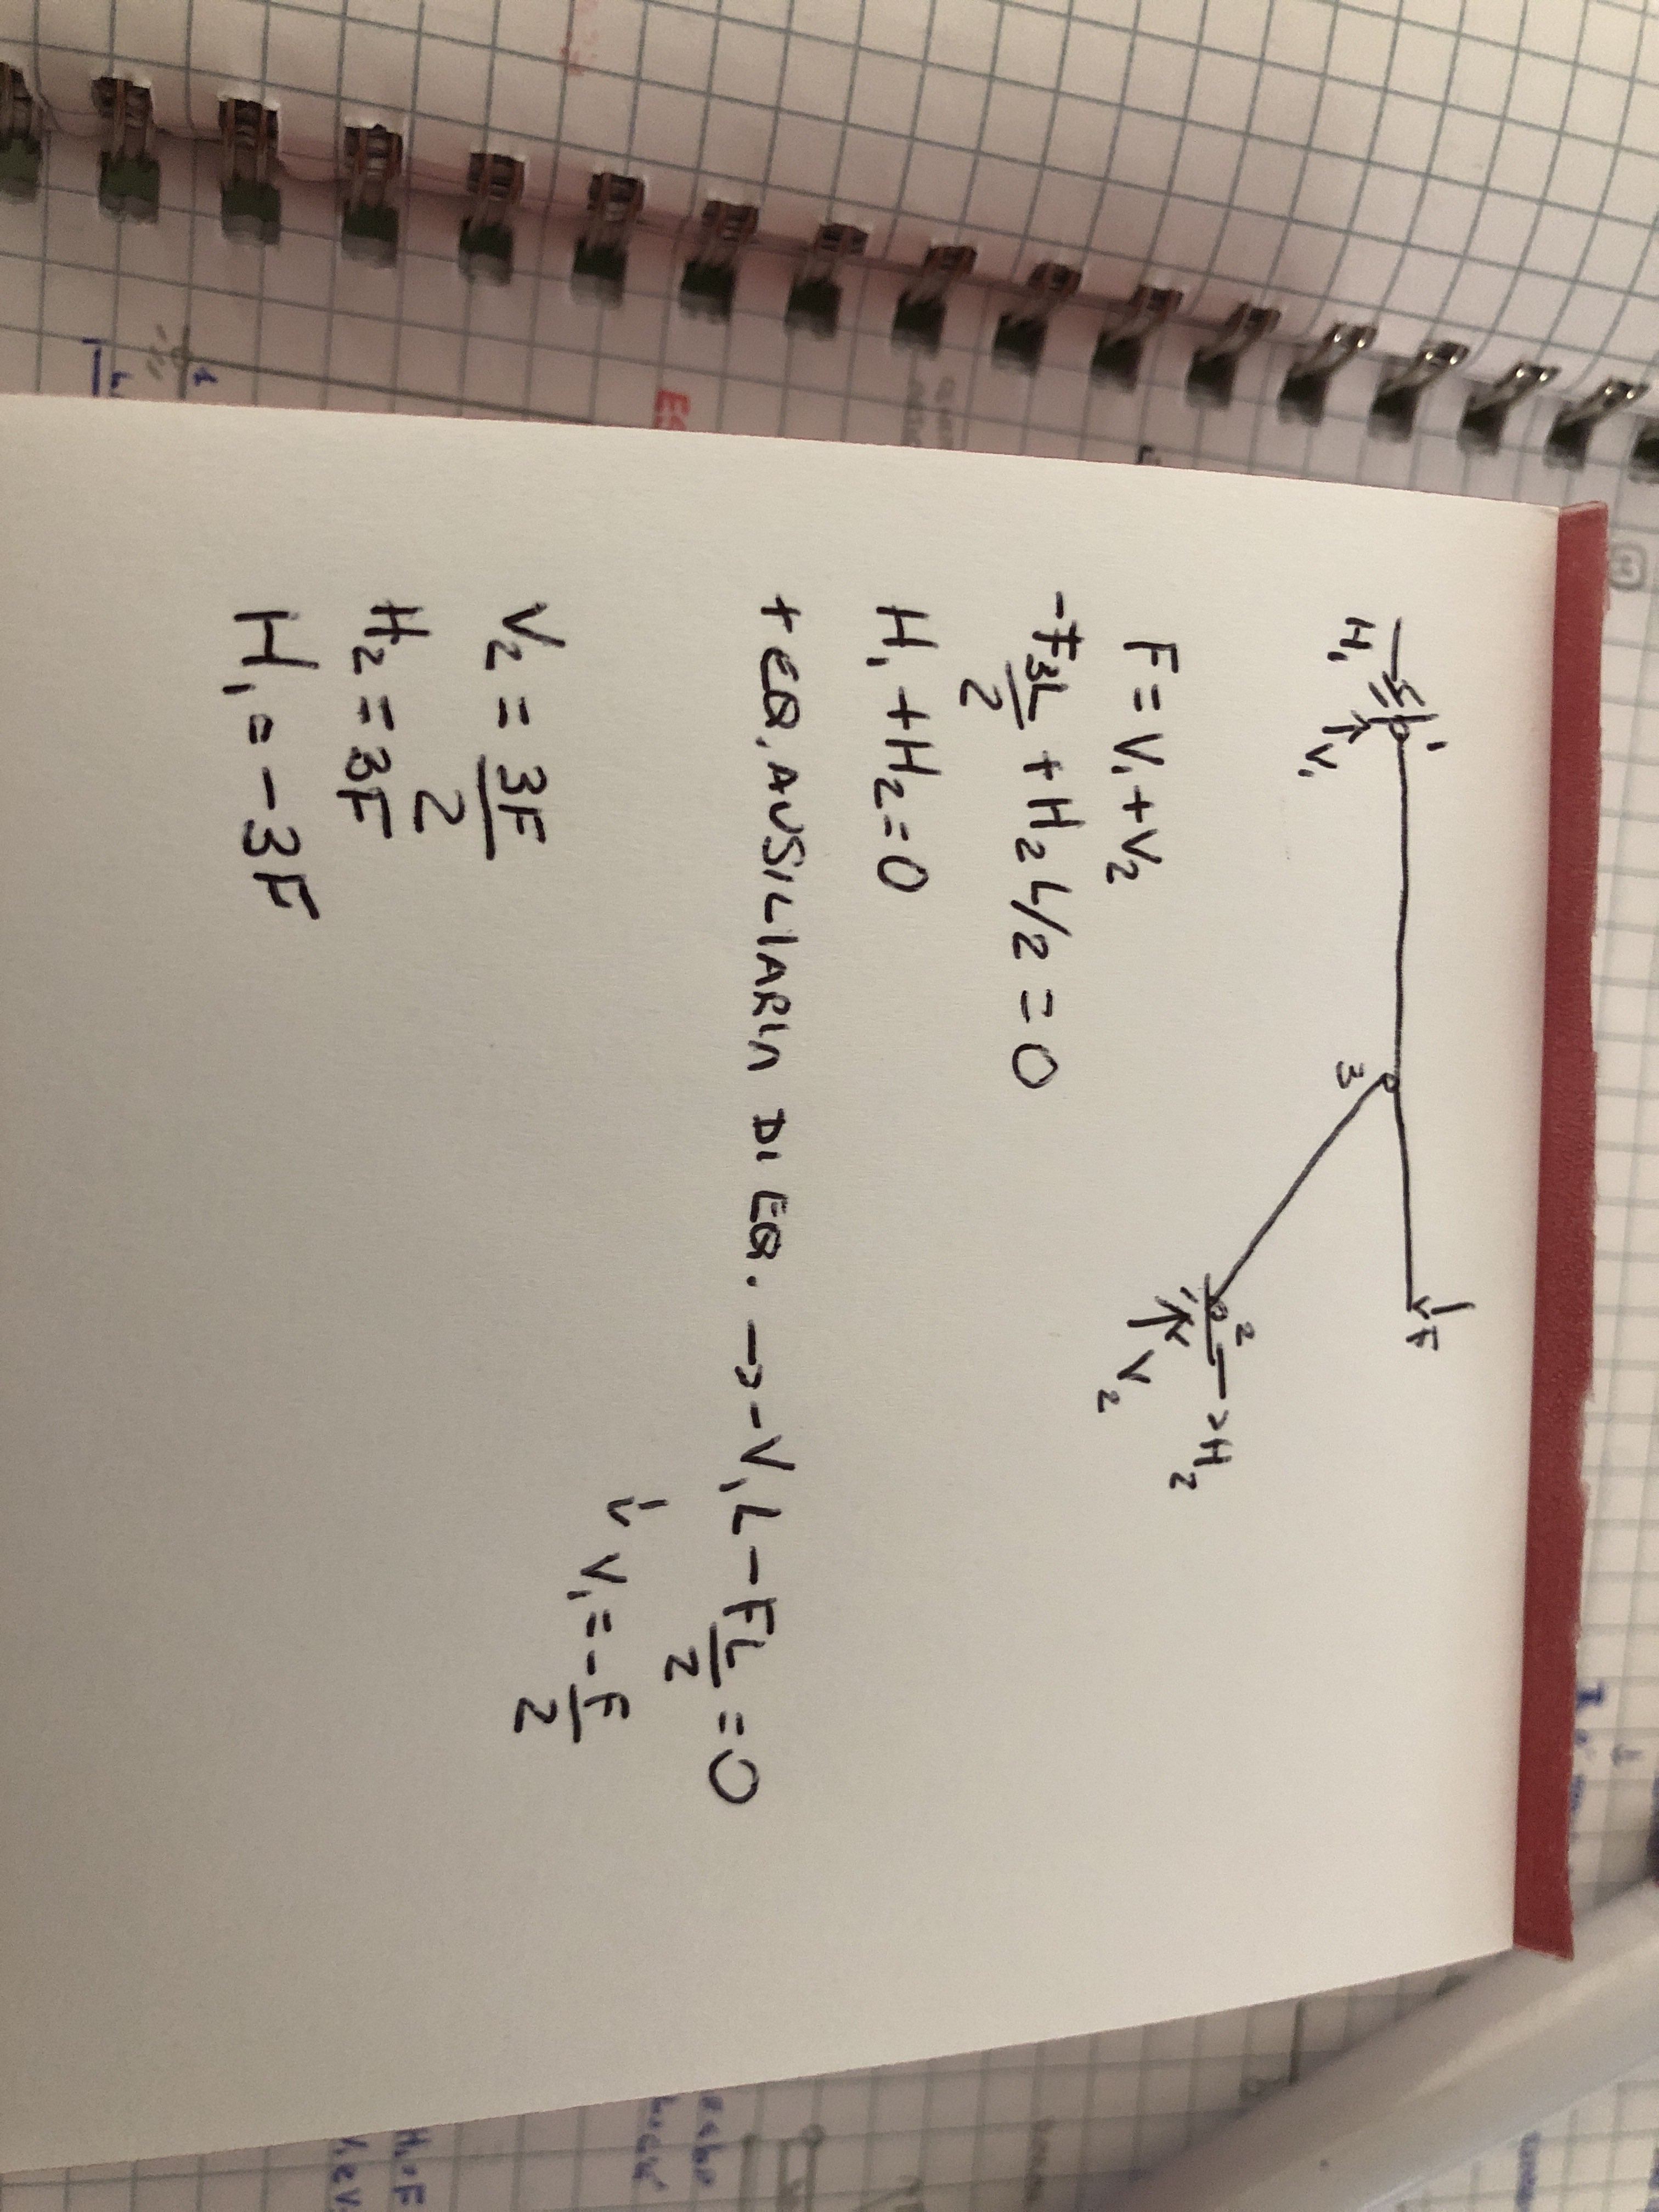 1
F
H₁
V₁
3
2
H₂
V₂
F = V₁ + V₂
-F 3L/2 + H₂ L/2 = 0
H₁ + H₂ = 0
+ EQ. AUSILIARIA DI EQ. → -V₁ L - F L/2 = 0
↓ V₁ = -F/2
V₂ = 3F/2
H₂ = 3F
H₁ = -3F